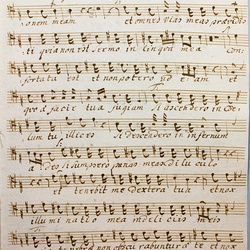 onem meam et omnes vias meas prævidis
ti quia non est sermo in lingva mea con
fortata est et non potero ad eam et
quo a facie tua fugiam Si ascendero in Coe
lum tu illic es Si descendero in infernum
ades si sumpsero pennas meas diluculo
et tenebit me dextera tua et nox
illuminatio mea in deliciis meis
non obscurabuntur a te et nox